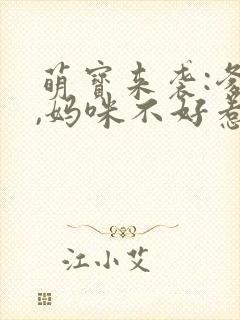 萌宝来袭:爹
,妈咪不好惹
江小艾